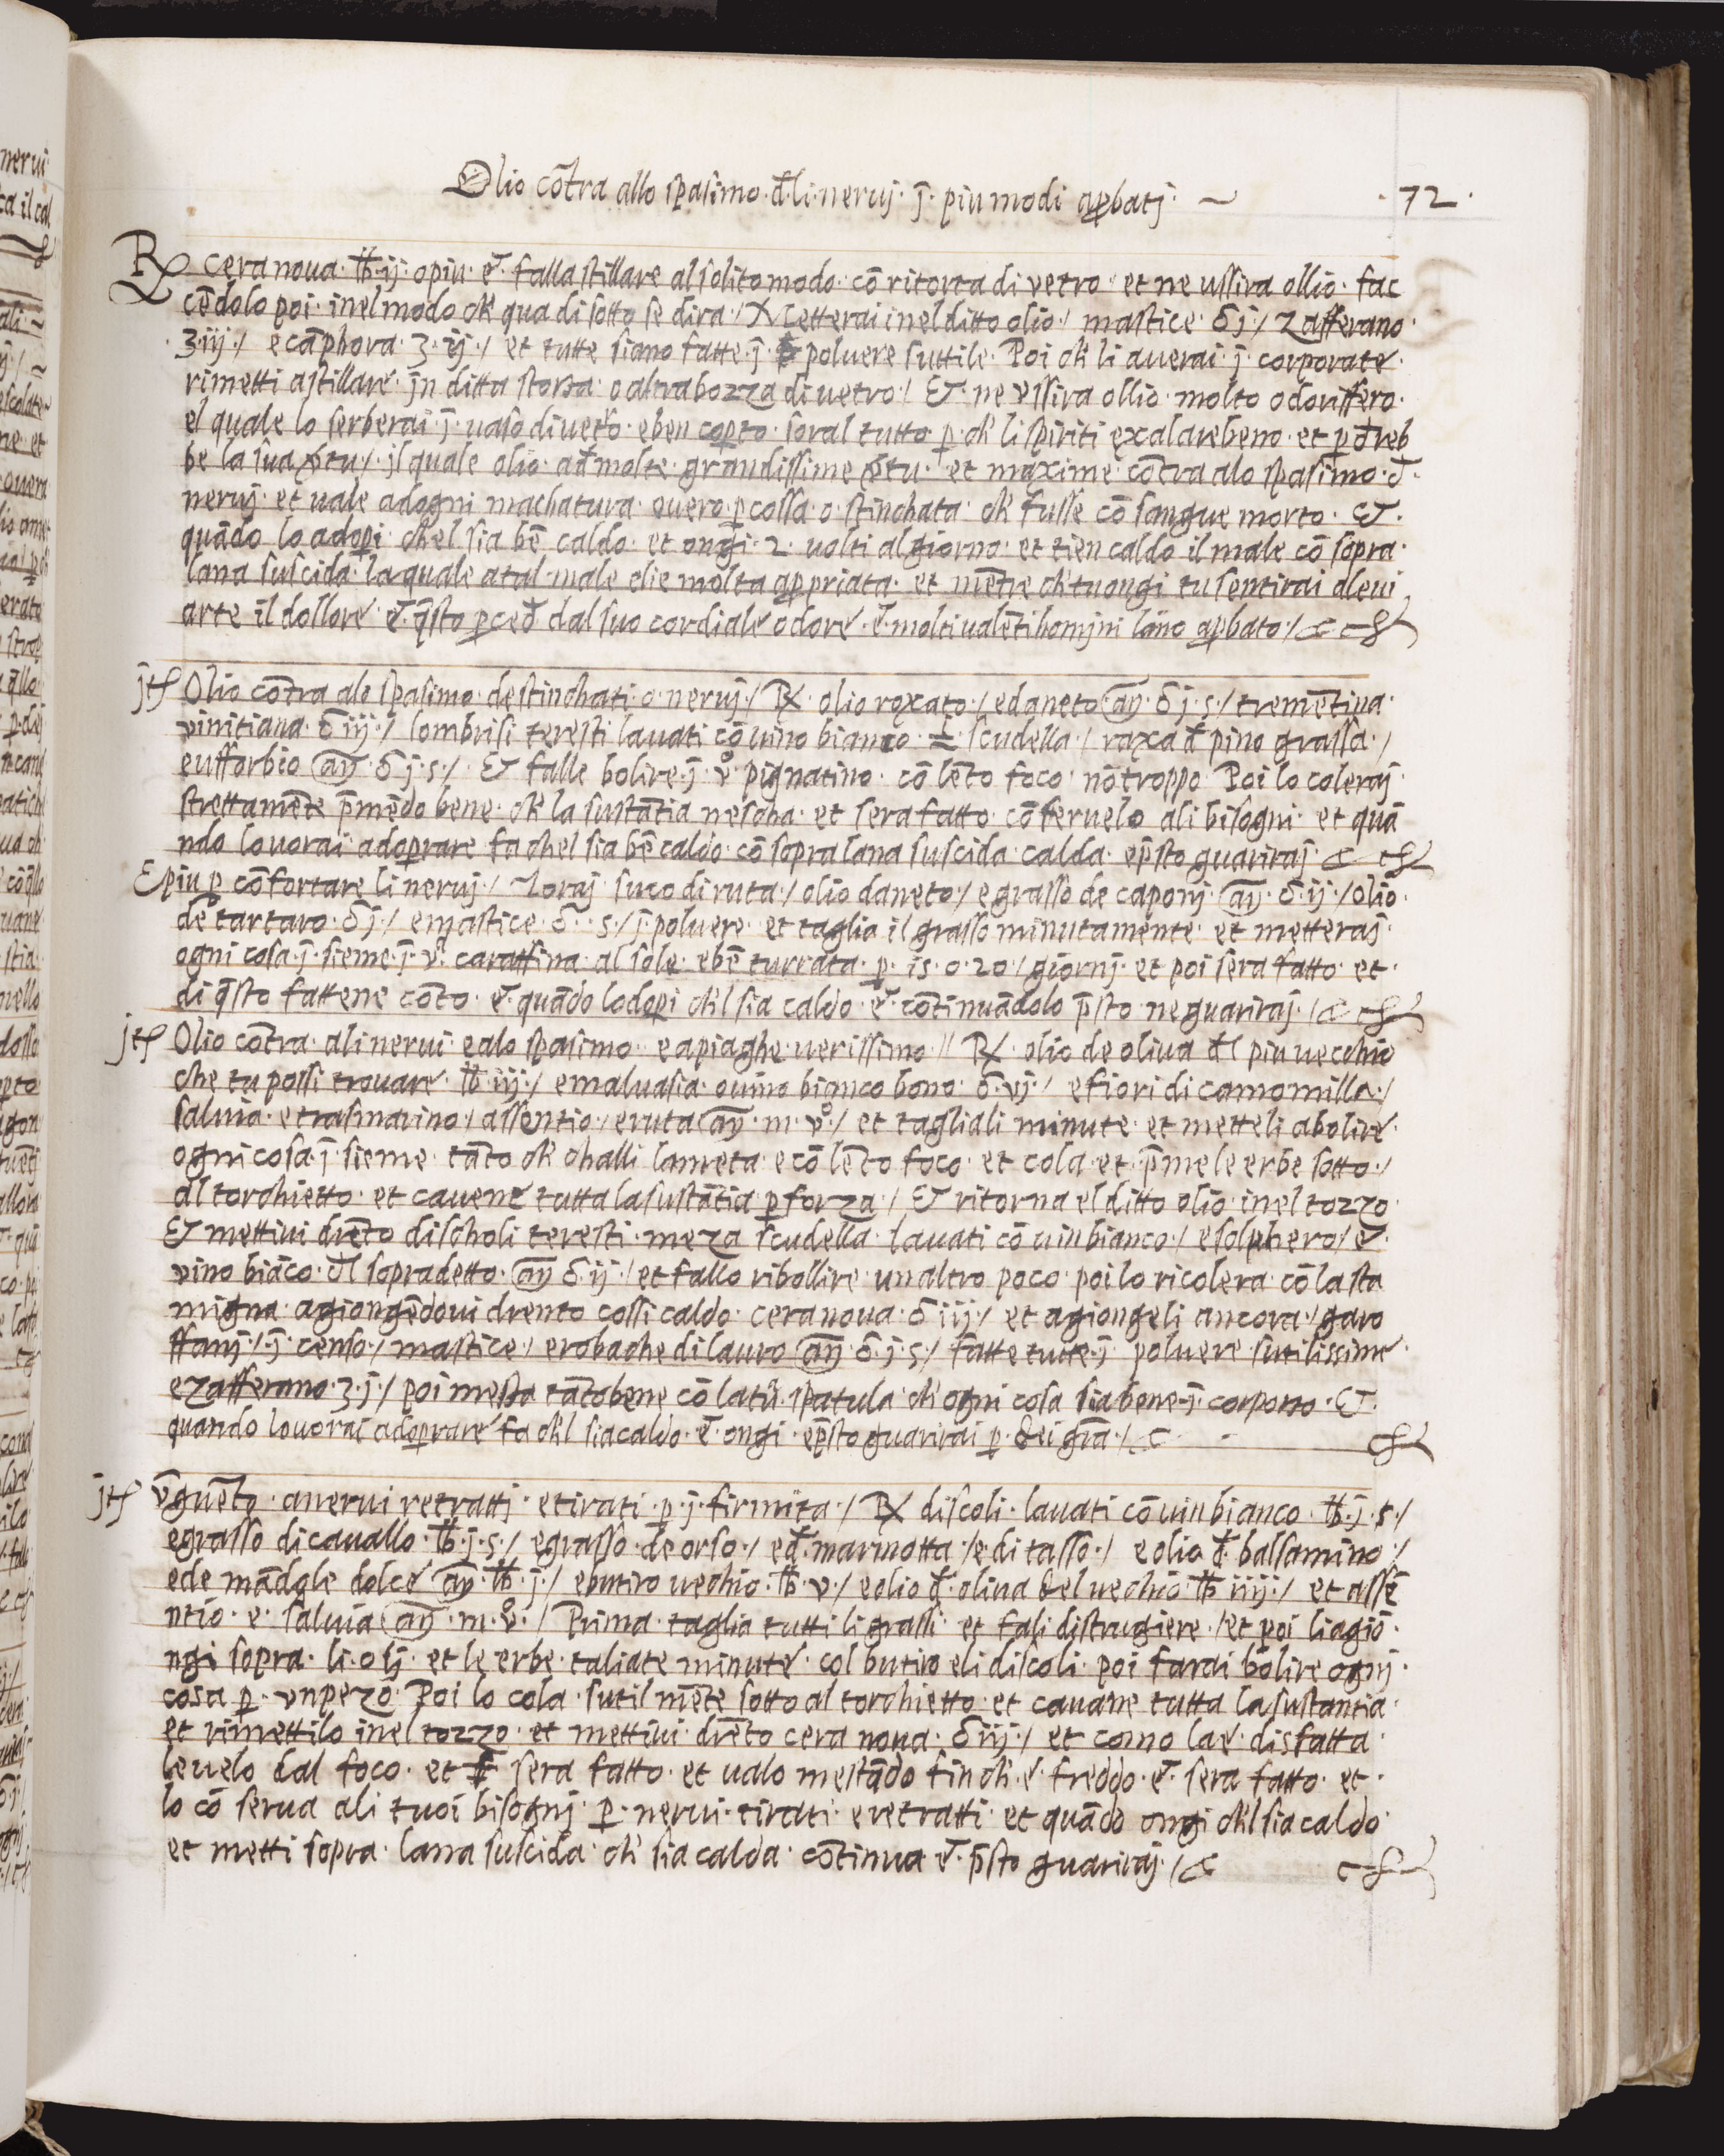 Olio cōtra allo spasimo. đ. li. neruj. j̄. piu modi apꝓbatj. ~ .72.
℞ cera noua. ℔. ij. o piu. e. falla stillare al solito modo. cō ritorta di vetro. et ne ussira ollio. fac
cēdolo poi. inel modo ch' qua di sotto se dira./ Metterai inel ditto olio./ mastice. ℥ j./ zafferano.
.ʒ. iij./ e cāphora. ʒ. ij./ et tutte siano fatte. j̄. poluere suttile. Poi ch' li auerai. j̄. corporate.
rimetti a stillare. jn ditta storta. o altra bozza di uetro./ Et. ne vssira ollio. molto odoriffero.
el quale lo serberai. j̄. uaso di uetro. e ben coperto. soral tutto. ꝑ. ch' li spiriti exalarebeno. et ꝑđreb
be la sua v̄tu./ jl quale olio. a đ molte. grandissime v̄tu. et maxime cōtra alo spasimo. đ.
neruj. et uale ad ogni machatura. ouero. ꝑcossa. o. stinchata. ch' fusse cō sangue morto. Et.
quādo lo adopi. chel sia bē caldo. et ongi. 2. uolti al giorno. et tien caldo il male cō sopra.
lana suscida. la quale a tal male elie molta apꝓpriata. et mētre ch' tu ongi tu sentirai aleui
arte il dollore e. q̄sto ꝓceđ dal suo cordiale odore. e. molti ualēti homini lāno apꝓbato./ &
jtē Olio cōtra alo spasimo. de stinchati. o. neruj./ ℞. olio roxato./ e daneto. aṉ. ℥ j. s./ tremētina.
vinitiana. ℥ iij./ lombrisi teresti lauati cō uino bianco. scudella./ raxa đ pino grassa./
eufforbio aṉ. ℥ j. s./. Et falle bolire. j̄. v̊. pignatino. cō lēto foco. nō troppo. Poi lo coleraj.
strettamēte p̄mēdo bene. ch' la sustātia nescha. et sera fatto. cōseruelo ali bisogni. et quā
ndo lo uorai adoprare fa chel sia bē caldo. cō sopra lana suscida. calda. e p̄sto guariraj. &
E piu ꝑ cōfortare li neruj./ Toraj. suco di ruta./ olio daneto./ e grasso de caponj. aṉ. ℥. ij./ olio.
de tartaro. ℥ j./ e mastice. ℥. s./ j̄. poluere. et taglia il grasso minutamente. et metteraj.
ogni cosa. j̄. sieme. j̄. v̊. caraffina. al sole. e bē turrata. ꝑ. 15. o. 20./ giornj. et poi sera fatto. et.
di q̄sto fattene cōto. e. quādo lo dopi ch'l sia caldo. e. cōtinuādolo p̄sto ne guariraj./ &
jtē Olio cōtra. ali nerui. e alo spasimo. e a piaghe. uerissimo.// ℞. olio de oliua đl piu vecchio
che tu possi trouare. ℔ iij./ e maluasia. o uino bianco bono. ℥. vj./ e fiori di camomilla./
saluia. e trasmarino./ assentio./ e ruta aṉ. m. v̊./ et tagliali minute. et metteli a bolire.
ogni cosa. j̄. sieme. tāto ch' challi lameta. e cō lēto foco. et cola. et. p̄me le erbe sotto./
al torchietto. et cauene tutta la sustātia ꝑ forza./ Et ritorna el ditto olio. inel tozzo.
Et mettiui drēto dischohli teresti. meza scudella. lauati cō uin bianco./ e solphero/ e.
vino biāco. đl sopradetto. aṉ ℥ ij./ et fallo ribollire. un altro poco. poi lo ricolera. cō la sta
migna. agiongēdoui drento cossi caldo. cera noua. ℥ iij./ et agiongeli ancora./ garo
ffanj./ j̄. censo./ mastice./ e robache di lauro aṉ. ℥. j. s./ fatte tutte. j̄. poluere sutilissime.
e zafferano. ʒ. j./ poi mesta tāto bene cō la tū. spatula. ch' ogni cosa sia bene. j̄. corporo. Et.
quando lo uorai adoprare fa ch'l sia caldo. e. ongi. e p̄sto guarirai ꝑ. dei grā./ &
jtē vnguēto. a nerui retrattj. e tirati. ꝑ. j̄. firmita./ ℞ discoli. lauati cō uin bianco. ℔. j. s./
e grasso di cauallo. ℔. j. s./ e grasso. de orso./ e đ. marmotta./ e. di tasso./ e olio đ. balsamino./
e de mādole dolce aṉ. ℔. j./ e butiro uechio. ℔. v./ e olio đ. oliua del uechio. ℔ iiij./ et assē
ntio. e. saluia aṉ. m. v̊./ Prima. taglia tutti li grassi. et fali distrugiere./ et poi li agiō.
ngi sopra. li. olj. et le erbe. taliate minute. col butiro e li discoli. poi farai bolire ognj.
cosa ꝑ. vn pezo. Poi lo cola. sutilmēte sotto al torchietto. et cauane tutta la sustantia.
et rimettilo inel tozzo. et mettiui. drēto cera noua. ℥ iij./ et como la e. disfatta.
leuelo dal foco. et sera fatto. et ualo mestādo fin ch'. e. freddo. e. sera fatto. et.
lo cō serua ali tuoi bisognj. ꝑ. nerui. tirati. e retratti. et quādo ongi ch'l sia caldo.
et metti sopra. lana suscida. ch' sia calda. cōtinua e. p̄sto guariraj./ &